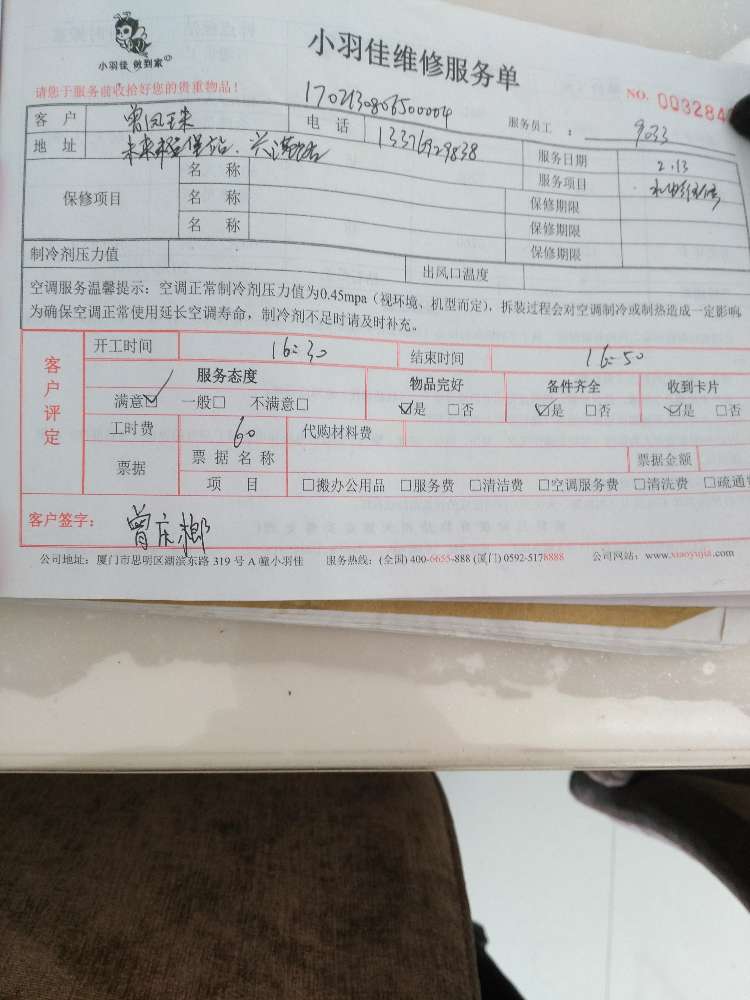 小羽佳 做到家
小羽佳维修服务单
请您于服务前收拾好您的贵重物品！
1702130806500004
NO. 003284
客 户 电 话 13376929838 服务员工 ： 9033
地 址 服务日期 2.13
服务项目
保修项目 名 称 保修期限
名 称 保修期限
名 称 保修期限
制冷剂压力值 出风口温度
空调服务温馨提示：空调正常制冷剂压力值为0.45mpa（视环境、机型而定），拆装过程会对空调制冷或制热造成一定影响
为确保空调正常使用延长空调寿命，制冷剂不足时请及时补充。
客户评定
开工时间 16:30 结束时间 16:50
服务态度 物品完好 备件齐全 收到卡片
满意☑ 一般□ 不满意□ ☑是 □否 ☑是 □否 ☑是 □否
工时费 60 代购材料费
票据 票 据 名 称 票据金额
项 目 □搬办公用品 □服务费 □清洁费 □空调服务费 □清洗费 □疏通
客户签字：
公司地址：厦门市思明区湖滨东路 319 号 A 幢小羽佳 服务热线：(全国) 400-6655-888 (厦门) 0592-5178888 公司网站：www.xiaoyujia.com